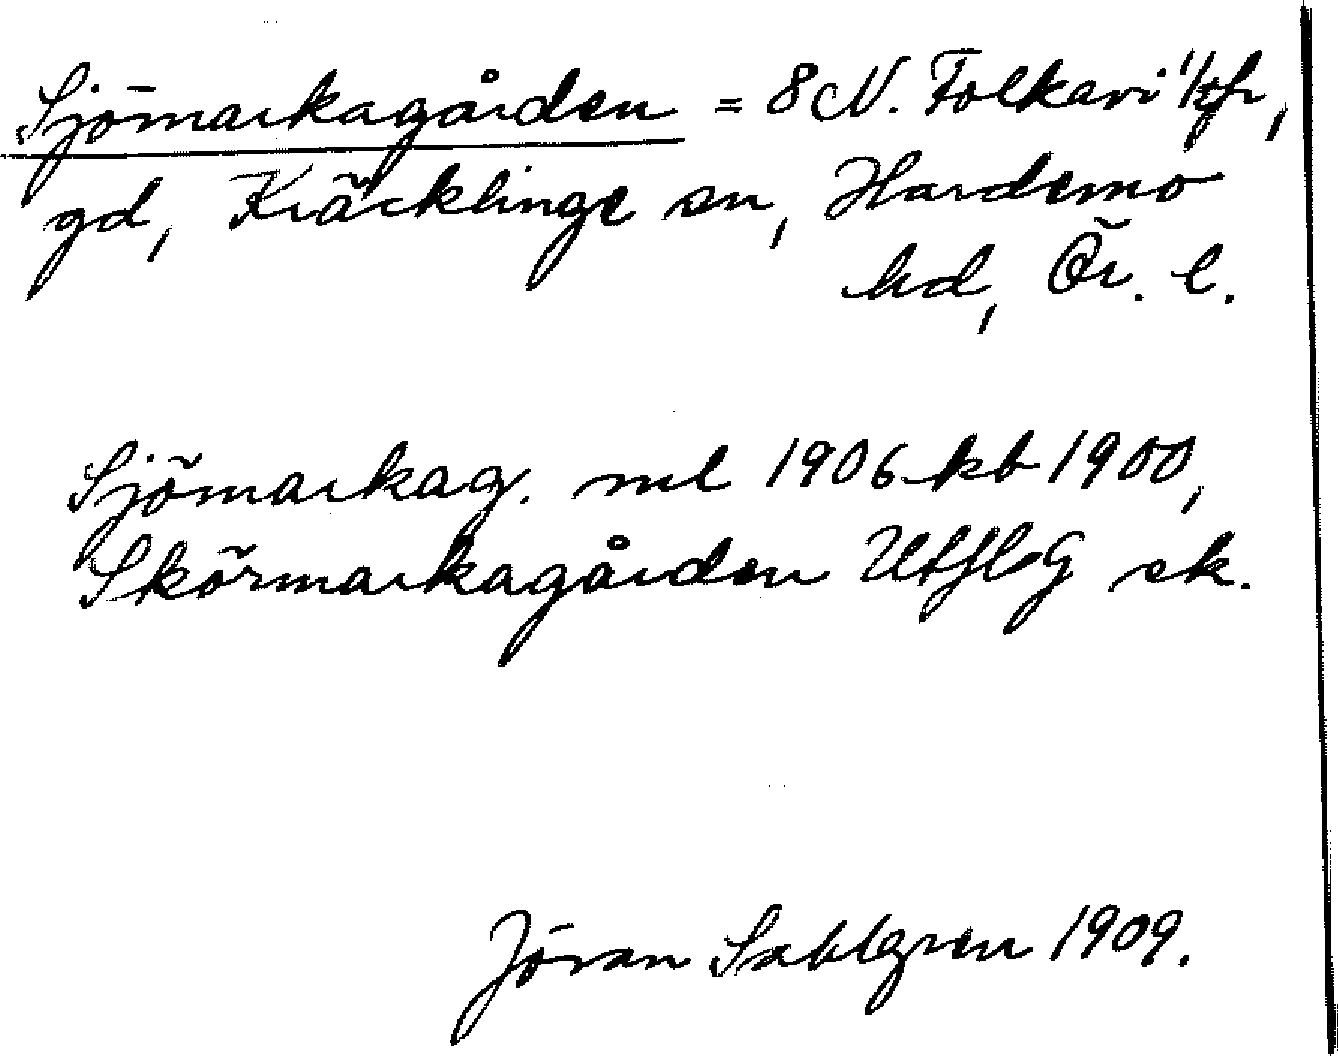 Sjömarkagården = 8 N. Folkavi
gd, Kräcklinge sn, Hardemo
hd, Ör. l.
Sjömarkag. ml 1906 kb 1900,
Skörmarkagården ek.
Jöran Sahlgren 1909.